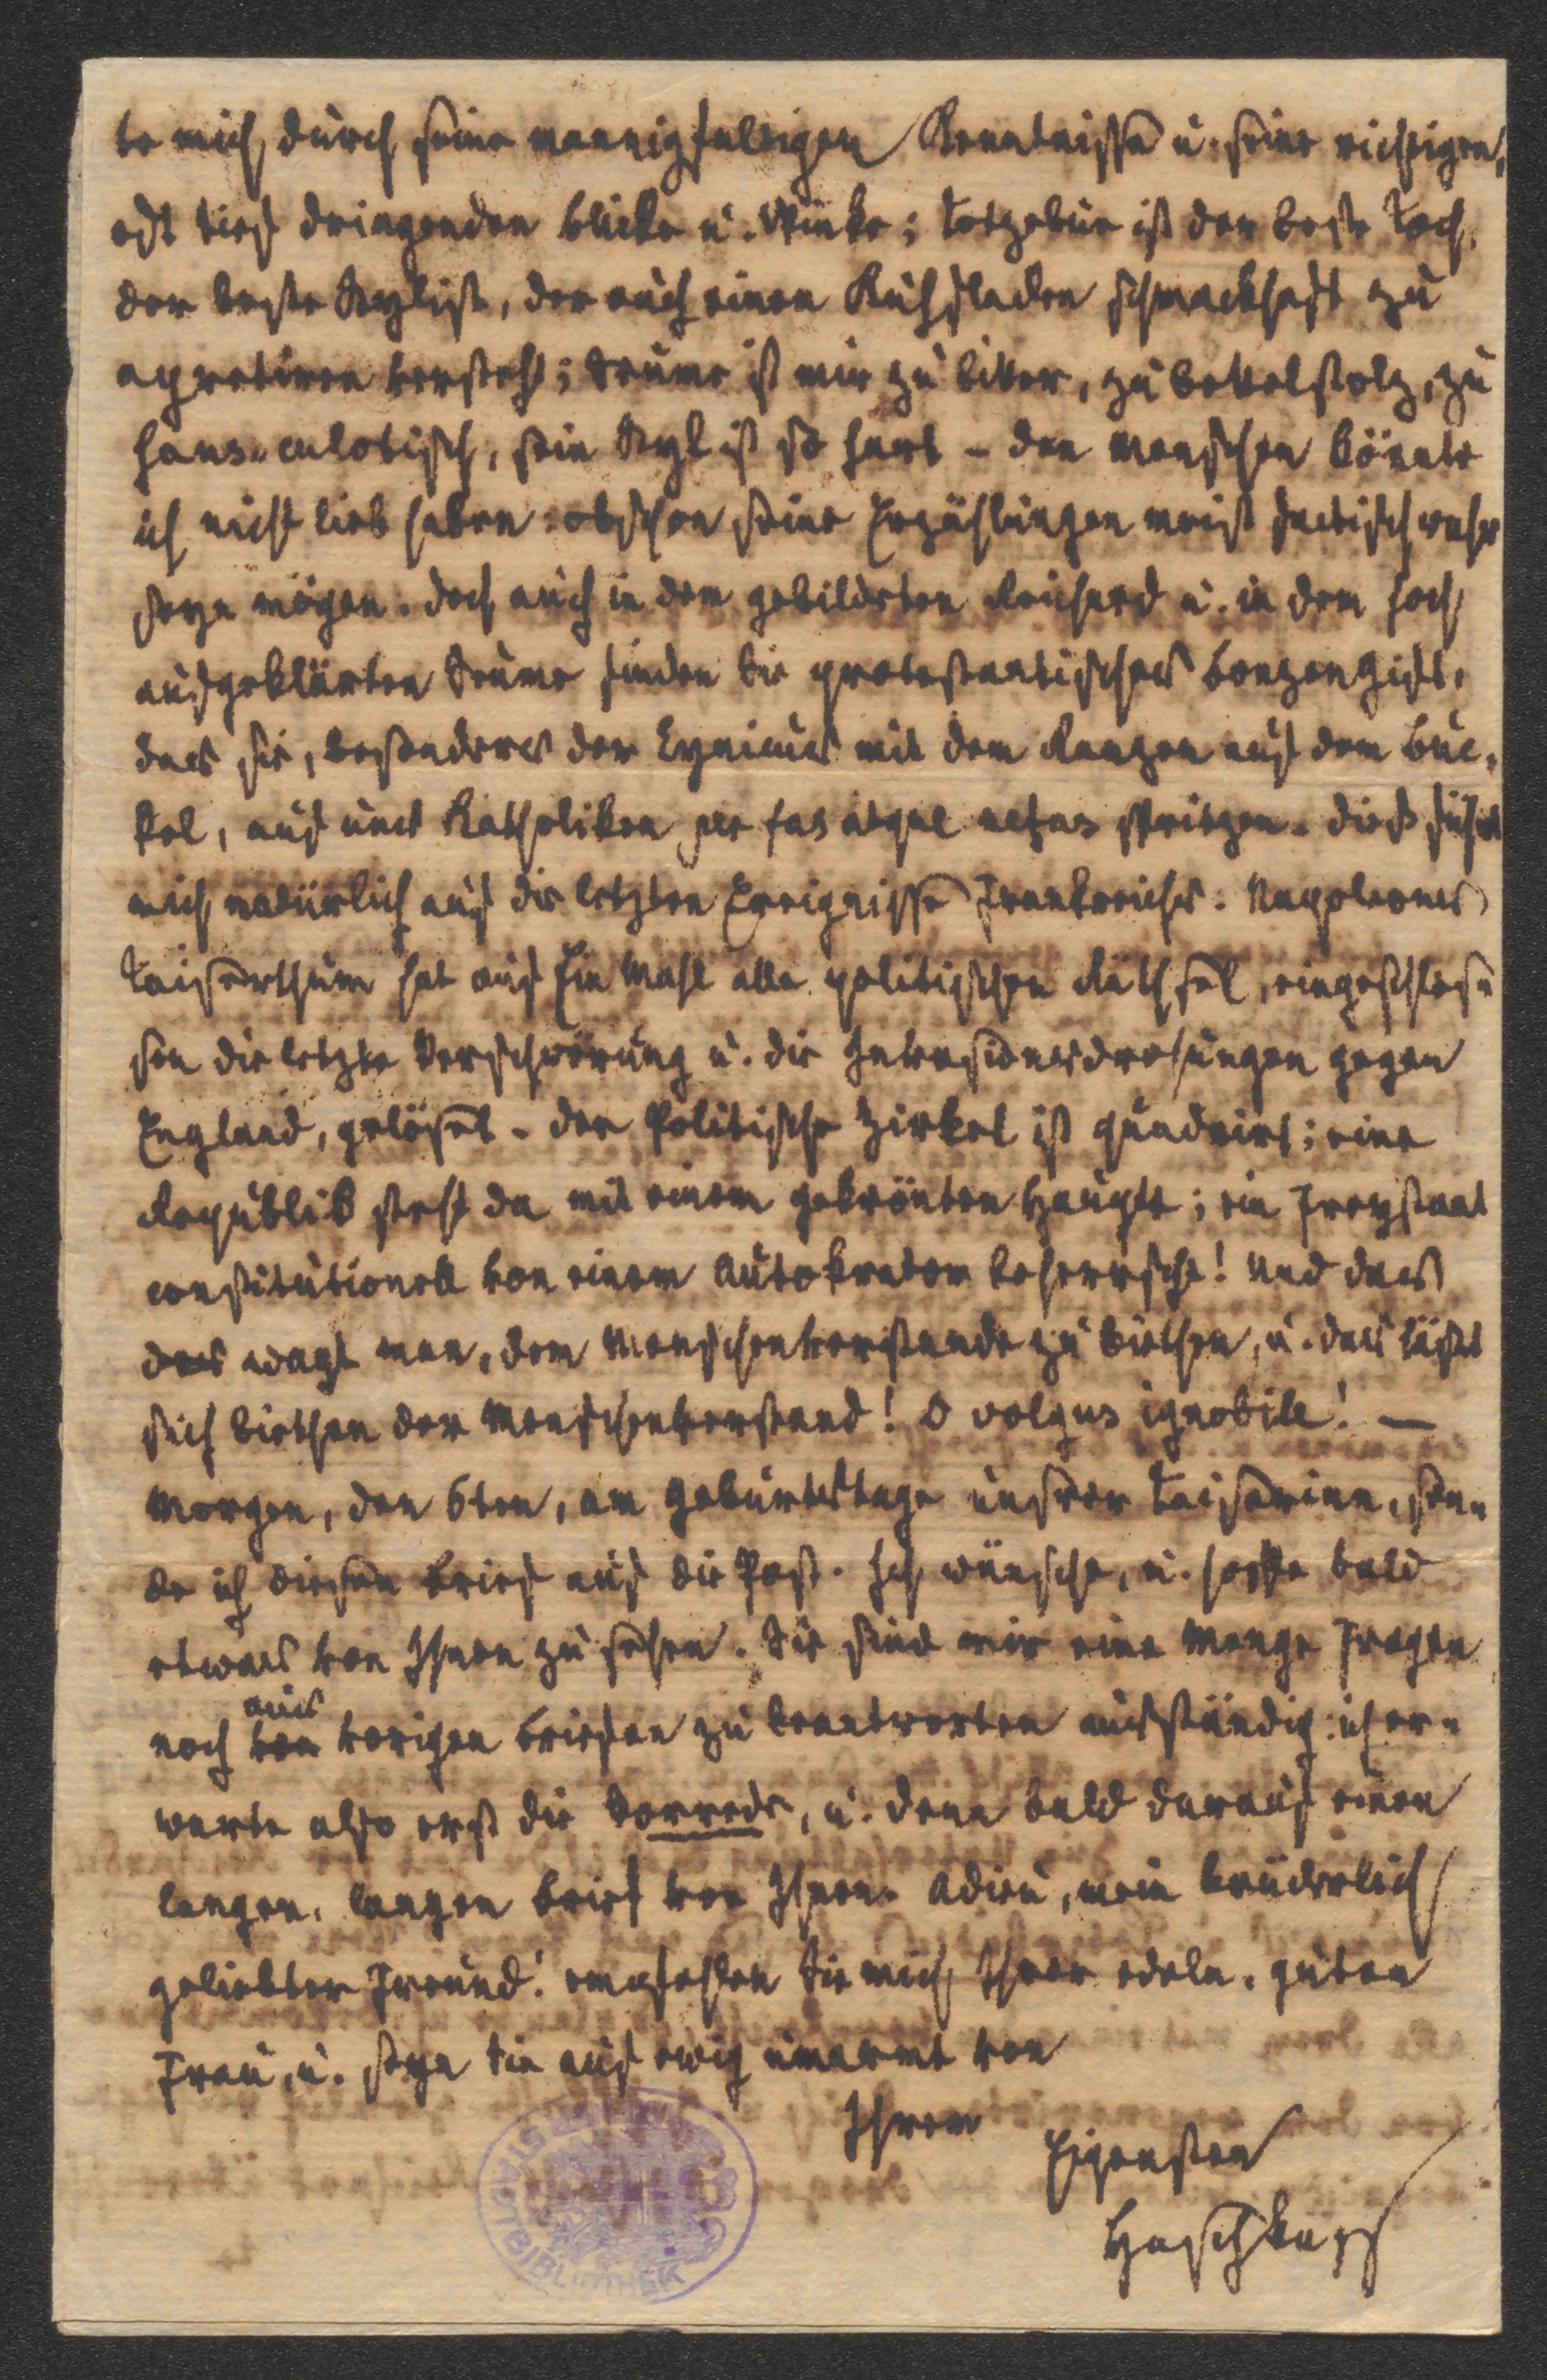 te mich durch seine mannigfaltigen Kenntnisse u. seine richtigen,
oft tief dringenden Blicke u. Winke; Kotzebue ist der beste Koch,
der beste Stylist, der auch einen Kuhfladen schmackhaft zu
apretiren versteht; Seume ist mir zu biter, zu bettelstolz, zu
hans-culotisch, sein Styl ist so hart - den Menschen könnte
ich nicht lieb haben: obschon seine Erzählungen meist factisch wahr
seyn mögen. Doch auch in dem gebildeten Reichard u. in dem hoch
aufgeklärten Seume finden Sie protestantisches Bonzengift,
das sie, besonders der Cynicus mit dem Ranzen auf dem Buc-
kel, auf uns Katholiken per fas atque nefas spritzen. Dieß führt
mich natürlich auf die letzten Ereignisse Frankreichs. Napoleons
Kaiserthum hat auf Ein Mahl alle politischen Räthsel, eingeschlos-
sen die letzte Verschwörung u. die Invasionsdrohungen gegen
England, gelöset. Der Politische Zirkel ist quadrirt; eine
Republik steht da mit einem gekrönten Haupte; ein Freystaat
constitutionell von einem Autokraten beherrscht! Und das
das wagt man, dem Menschenverstande zu biethen, u. das läßt
sich biethen der Menschenverstand! O volgus ignobile! —
Morgen, den 6ten, am Geburtstage unsrer Kaiserinn, sen-
de ich diesen Brief auf die Post. Ich wünsche, u. hoffe bald
etwas von Ihnen zu sehen. Sie sind mir eine Menge Fragen
aus
noch von vorigen Briefen zu beantworten ausständig: ich er-
warte also erst die Vorrede, u. dann bald darauf einen
langen, langen Brief von Ihnen. Adieu, mein brüderlich
geliebter Freund! empfehlen Sie mich Ihrer edeln, guten
Frau, u. seyn Sie auf ewig umarmt von
Ihrem
Eigensten
Haschka
STADTBIBLIOTHEK